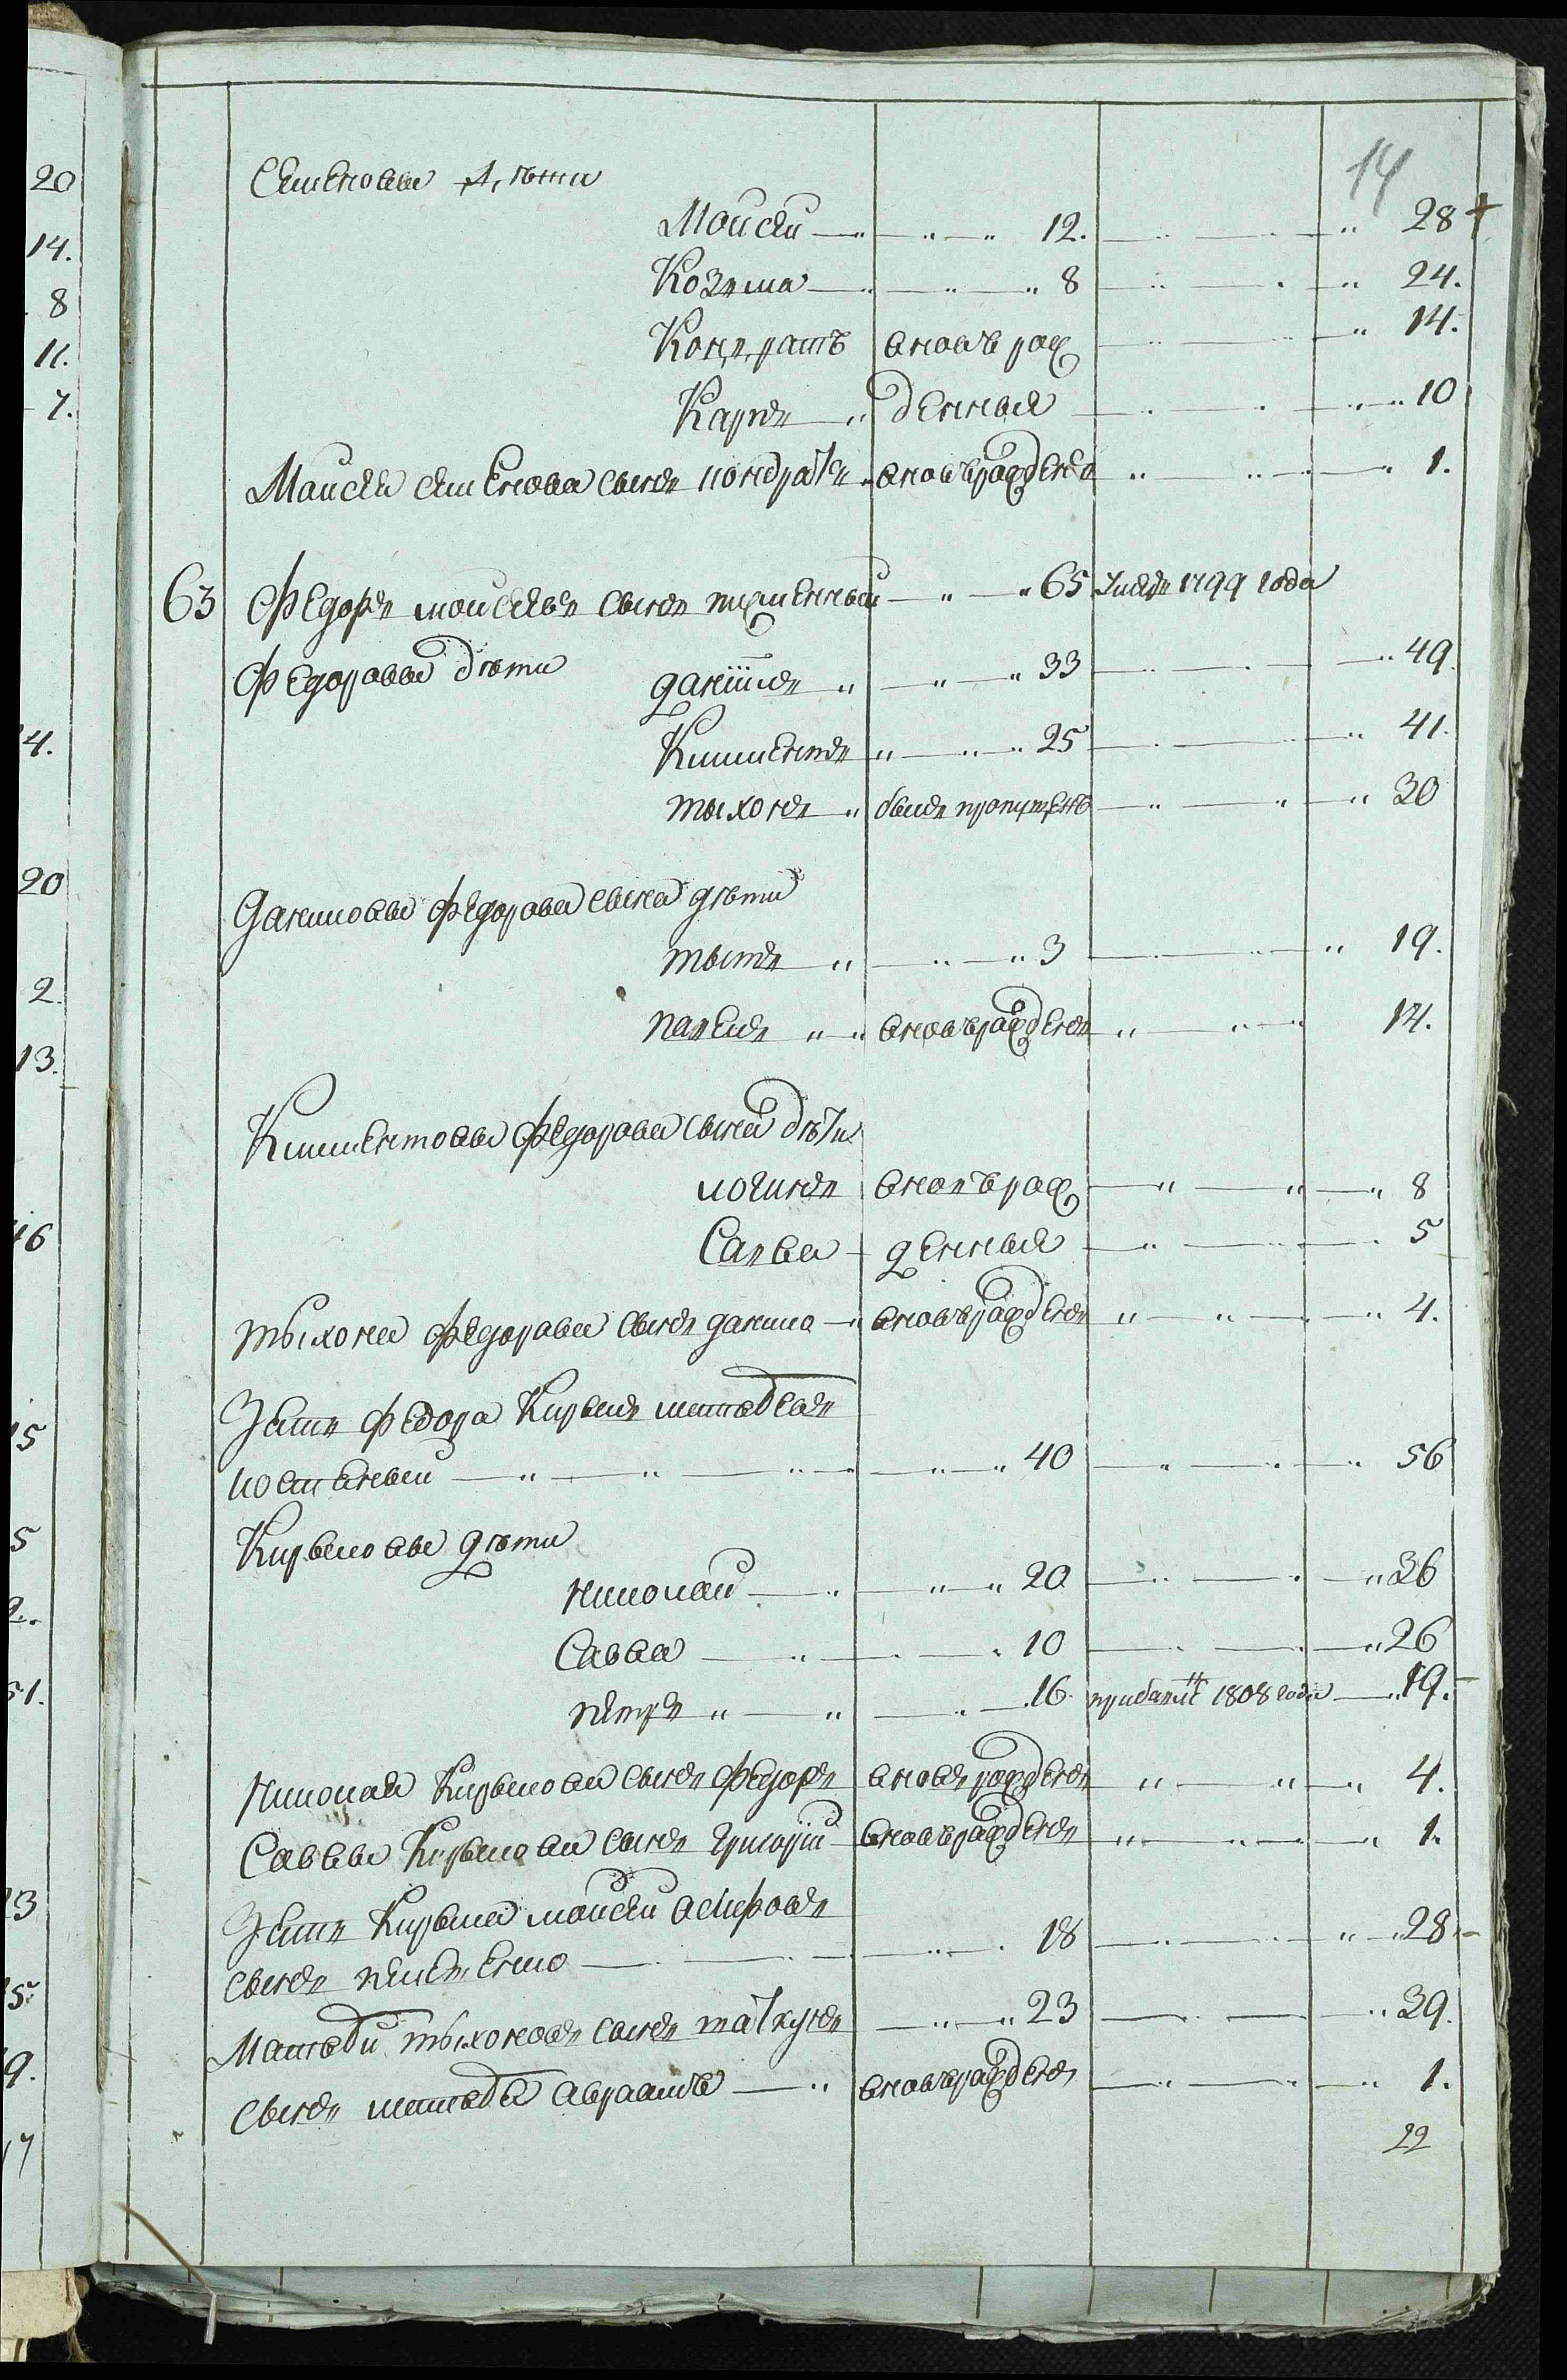 14
Семеновы дѣти
Моисѣй 12. 28 +
Козма 8 24.
Кондратъ вновь рож 14.
Карпъ денныя 10
Маисея Семенова сынъ кондратъ вновь рожденъ 1.
63 Федоръ моисеевъ сынъ 65 умеръ 1799 года
Федоровы дѣти
данило 33 49.
Климентъ 25 41.
тыхонъ былъ пропущенъ 30
Даниловы федорова сына дѣти
тытъ 3 19.
павелъ вновь рожденъ 14.
Климентовы федорова сына дѣти
логинъ вновь рож 8
Савва денныя 5
тыхона федорова сынъ данило вновь рожденъ 4.
Зять Федора Кирыла матвѣевъ
40 56
Кирыловы дѣти
николай 20 36
Савва 10 26
петръ 16 прибылъ 1808 года 19.
николая Кирылова сынъ федоръ вновь рожденъ 4.
Саввы Кирылова сынъ григорій вновь рожденъ 1.
Зять Кирыла моисей
сынъ 18 28
Матвѣй тыхоновъ сынъ 23 39.
сынъ матвѣя авраамъ вновь рожденъ 1.
22
20
14.
8
11.
7.
4.
20
2.
13.
16
15
5
2.
51.
13
15
9.
17